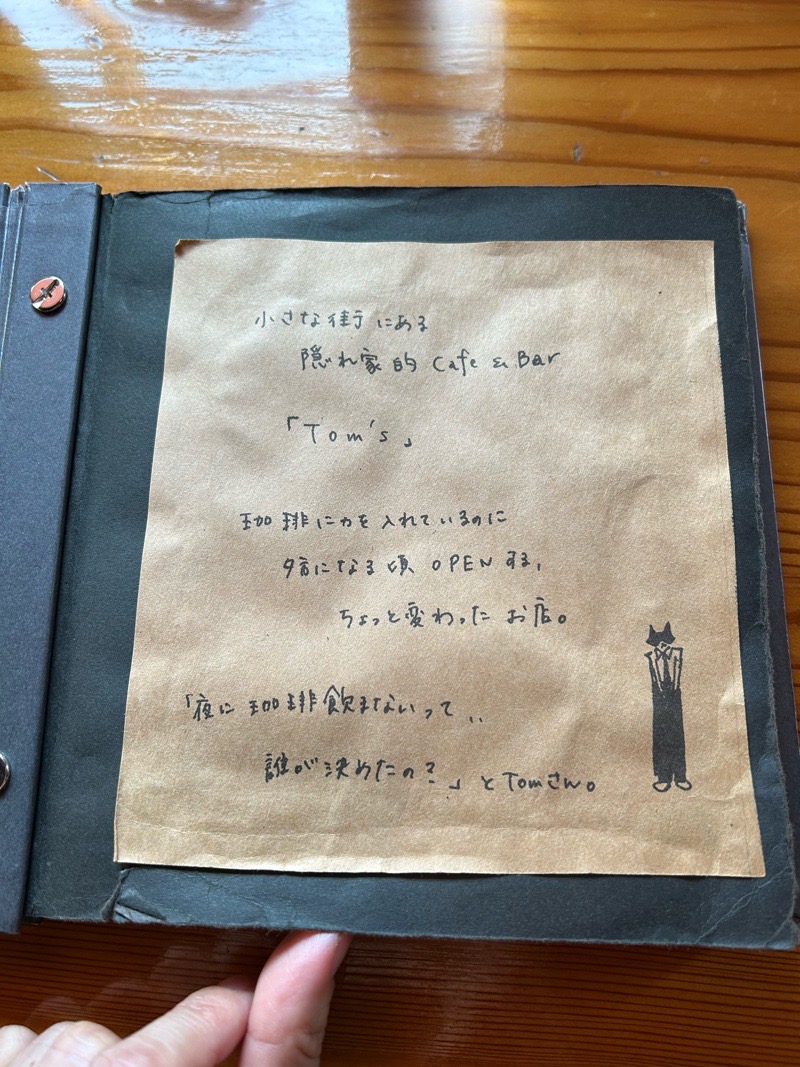 小さな街にある
隠れ家的 Cafe & Bar
「Tom's」
珈琲に力を入れているのに
夕方になる頃 OPENする、
ちょっと変わったお店。
「夜に珈琲飲まないって、、
誰が決めたの？」とTomさん。